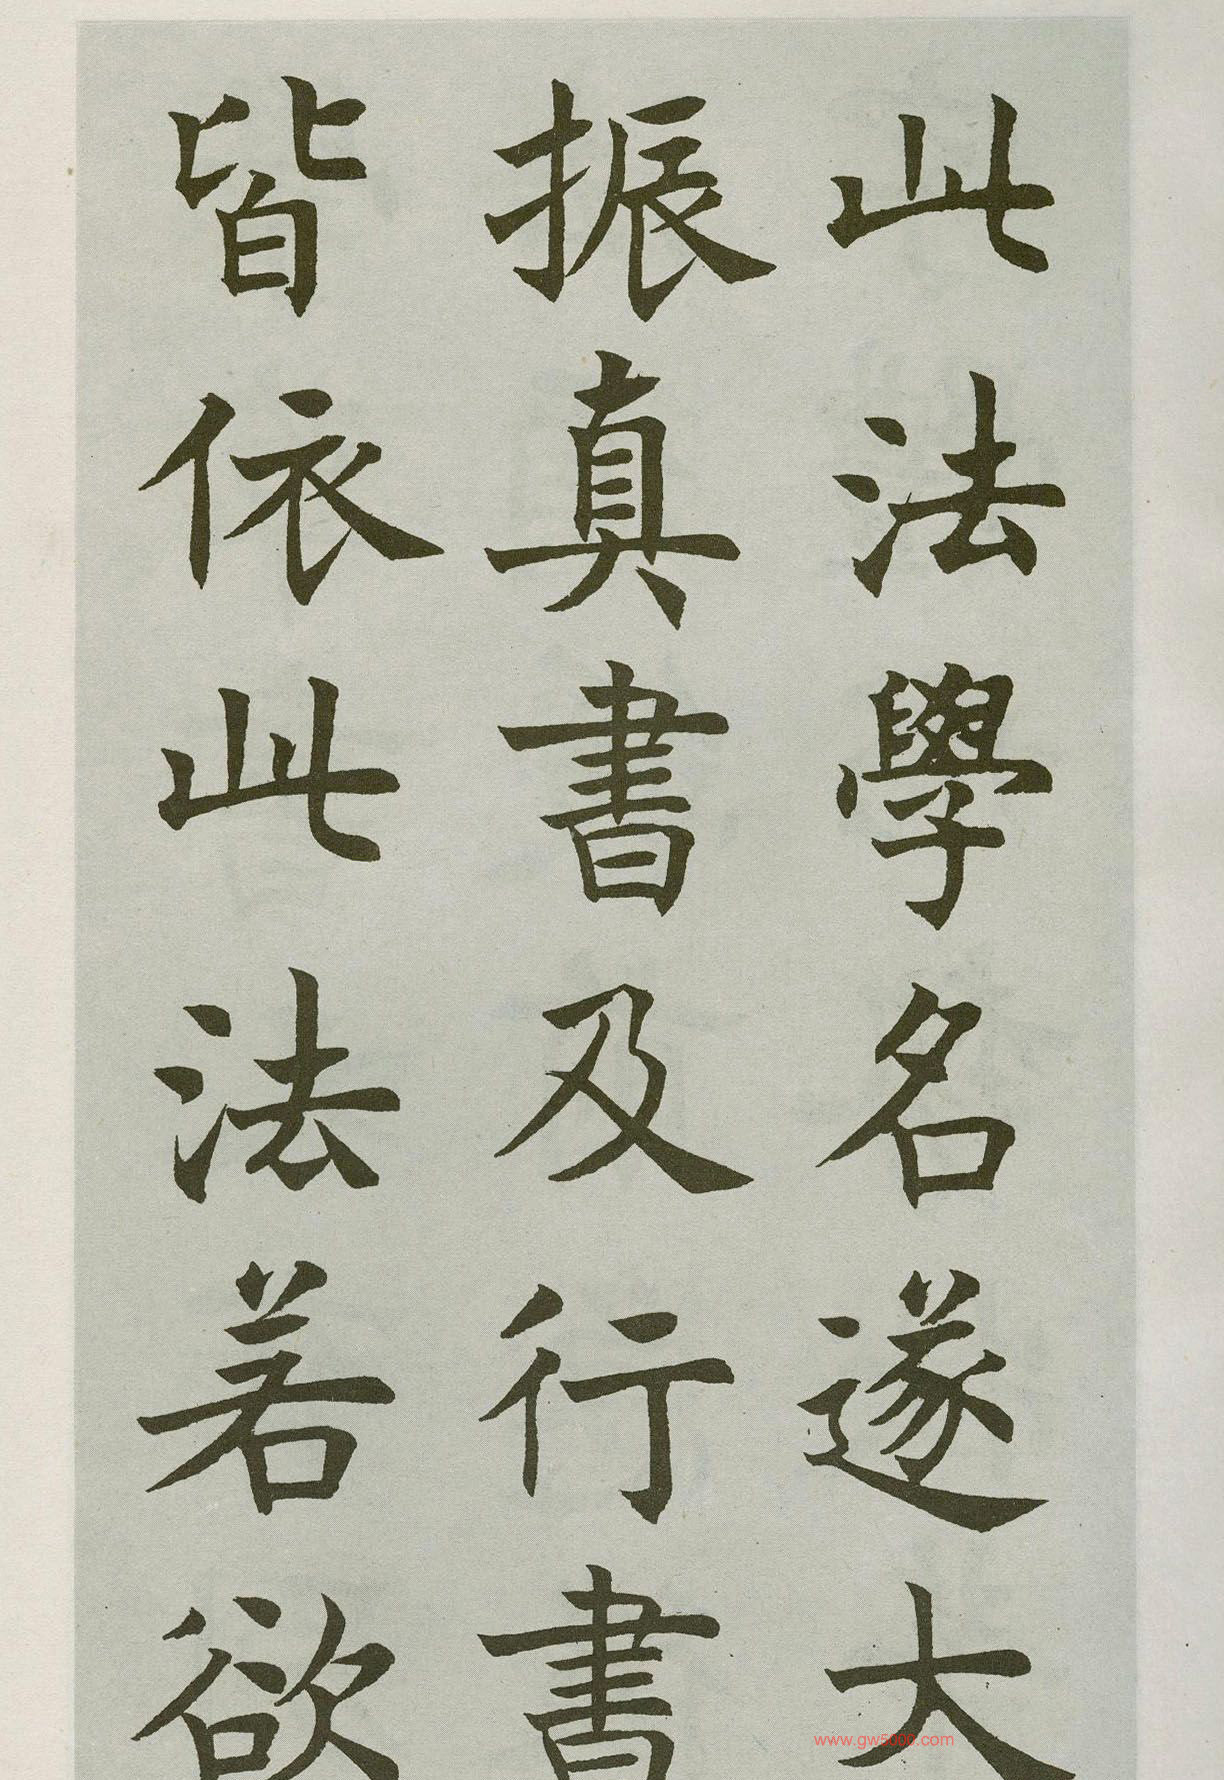 此法學名遂大
振真書及行書
皆依此法若欲
www.gw5000.com